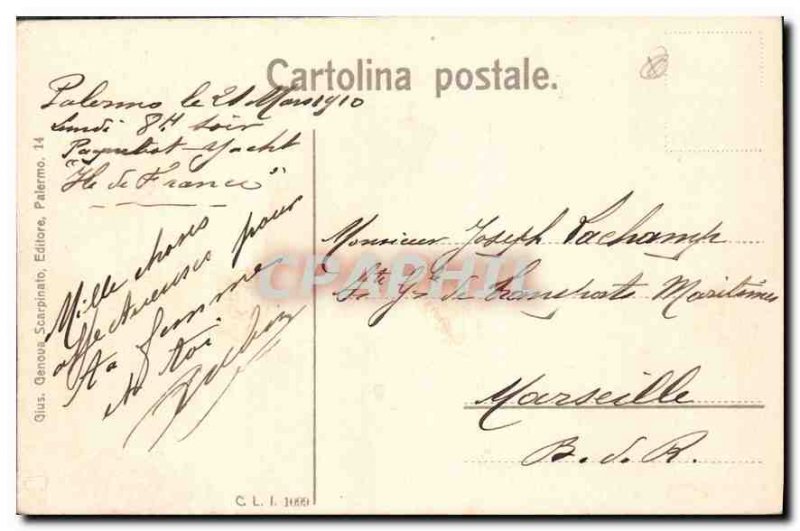 Cartolina postale.
Palermo le 21 Mars 1910
Lundi 8H soir
Paquebot-yacht
"Ile de France"
Mille choses
affectueuses pour
ta femme
et toi.
Monsieur Joseph Pachamp
Sté Gle de Transports Maritimes
Marseille
B. d. R.
Gius. Genova Scarpinato, Editore, Palermo. 14
C. L. I. 1099
CPAPHIL